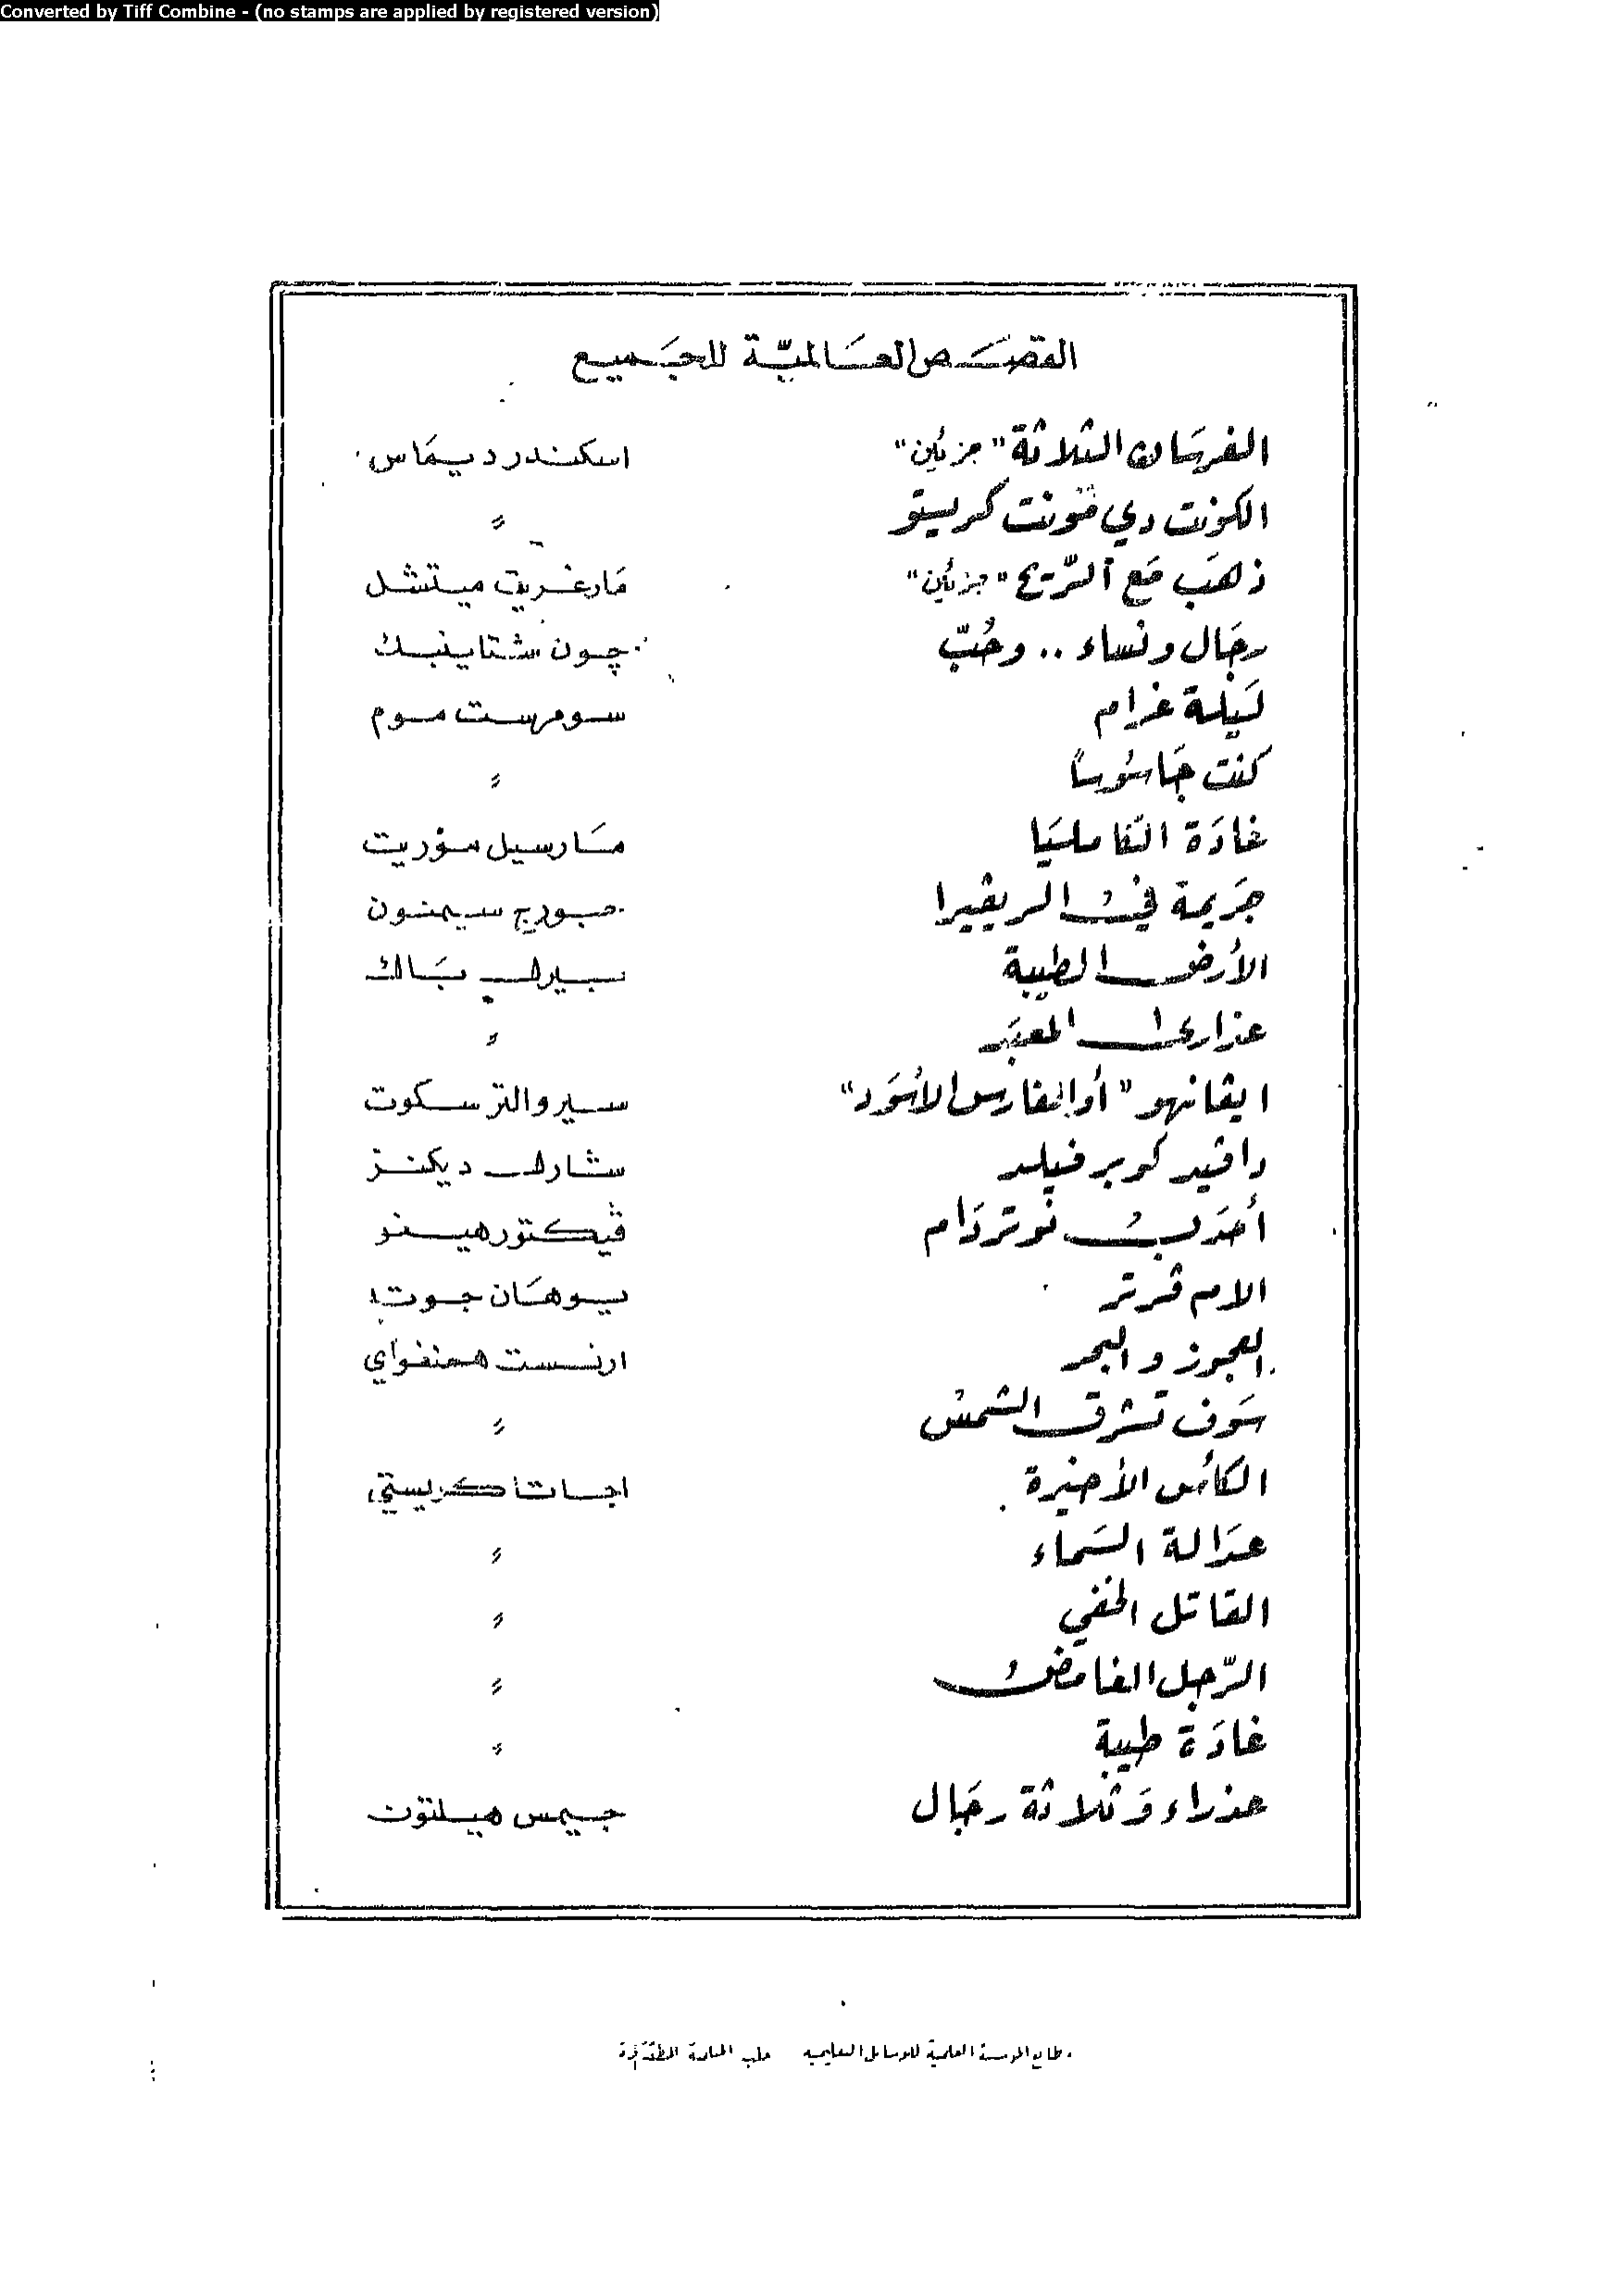 Converted by Tiff Combine - (no stamps are applied by registered version)
القصَص العَالميّة للجَميع
الفرسَان الثلاثة "جزئين" اسكندر ديمَاس
الكونت دي مَونت كريستو "
ذهَب مَع الرّيح "جزئين" مَارغريت ميتشل
رجَال ونساء .. وحُبّ چون شتاينبك
لَيْلة غرام سومرست موم
كنت جَاسُوساً "
غادَة الكامليَا مَارسيل موريت
جَريمة في الريڤييرا جورج سيمنون
الأرض الطيبة بيرل بَاك
عذارى المعبَد "
ايڤانهو "أو الفارس الأسوَد" سير والتر سكوت
داڤيد كوبرفيلد شارل ديكنز
أحدَب نوتردَام ڤيكتور هيغو
الام ڤرتر يوهَان جوته
العجوز والبحر ارنست همنغواي
سَوف تشرق الشمس "
الكأس الأخيرة اجاتا كريستي
عدَالة السَماء "
القاتل الخفي "
الرّجل الغامض "
غادَة طيبة "
عذراء وَثلاثة رجَال جيمس هيلتون
مطابع المؤسسة العلمية للوسائل التعليمية حلب